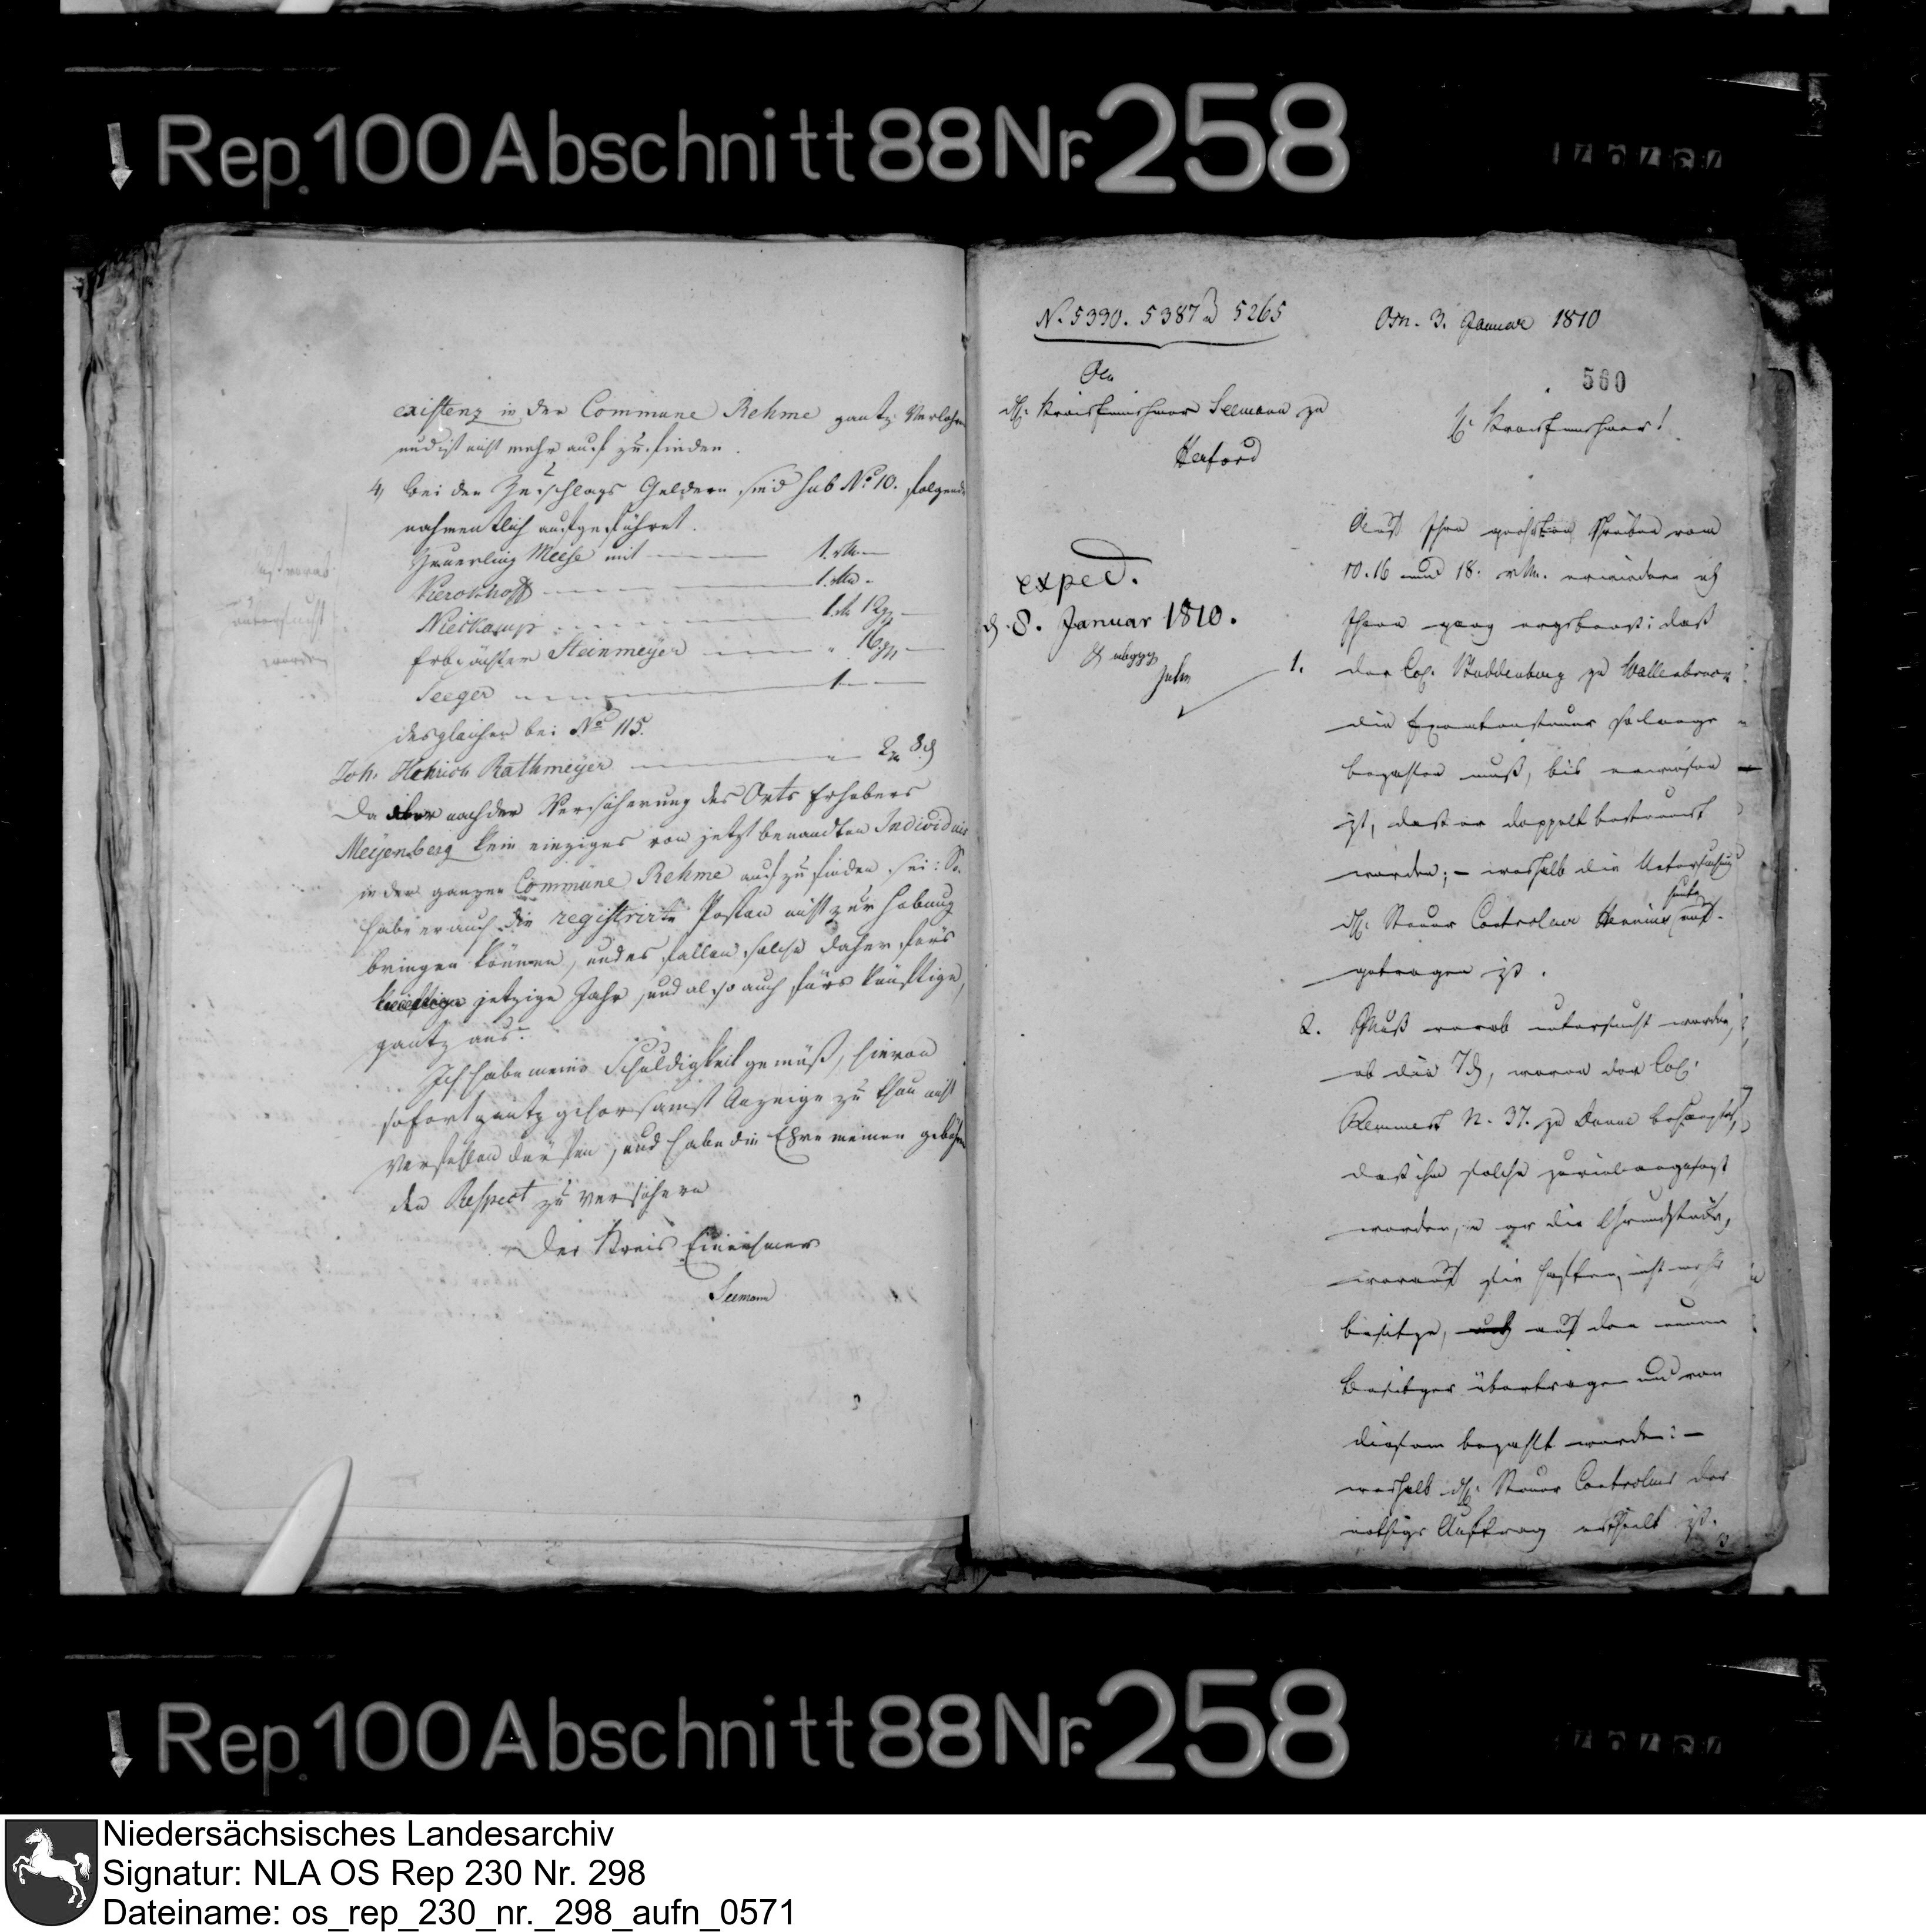 Rep. 100 Abschnitt 88 Nr. 258
existenz in der Commune Rehme gantz verlohren
und ist nicht mehr auf zu finden.
4, bei den Zuschlags Geldern sind sub No 10. folgende
nahmentlich aufgeführet.
Heuerling Meese mit 1.
Kerckhoff 1.
Nieskamp 1. 12
Erbpächter Steinmeyer 16
Seeger 1
desgleichen bei No 115.
Joh. Henrich Rathmeyer 2 8
Da aber nach der Versicherung des Orts Erhebers
Meyenberg kein einziges von jetzt benandten Individuis
in der ganzen Commune Rehme auf zu finden sei: So
habe er auch die registrirte Posten nicht zur Hebung
bringen können, und es fallen solche daher fürs
jetzige Jahr, und also auch fürs künftige,
gantz aus.
Ich habe meine Schuldigkeit gemäß, hievon
sofort gantz gehorsamst Anzeige zu thun nicht
verfehlen dürfen, und habe die Ehre meinen gebühren
den Respect zu versichern
Der Kreis Einnehmer
Seemann
vorab
untersucht
werden
N. 5390. 5387 u 5265
Osn. 3. Januar 1810
560
An
H. Kreiseinnehmer Seemann zu
Herford
H. Kreiseinnehmer!
exped.
d. 8. Januar 1810.
Auf Ihre geehrten Schreiben vom
10. 16 und 18. v. M. erwiedere ich
Ihnen ganz ergebenst: daß
1. der Col. Buddenberg zu Wallenbrock
die Exemtensteuer so lange
bezahlen muß, bis erwiesen
ist, daß er doppelt besteuert
worden; – weshalb die Untersuchung
H. Steuer Controleur heute auf-
getragen ist.
2. Muß vorab untersucht werden,
ob die 7 d, wovon der Col.
Remmert N. 37. zu behauptet,
daß ihm solche zuviel angesetzt
worden, u er die Grundstücke,
worauf sie haften, nicht mehr
besitze, auf den neuen
Besitzer übertragen und von
diesem bezahlt worden: –
weshalb H. Steuer Controleur der
nöthige Auftrag ertheilt ist.
3
Rep. 100 Abschnitt 88 Nr. 258
Niedersächsisches Landesarchiv
Signatur: NLA OS Rep 230 Nr. 298
Dateiname: os_rep_230_nr._298_aufn_0571